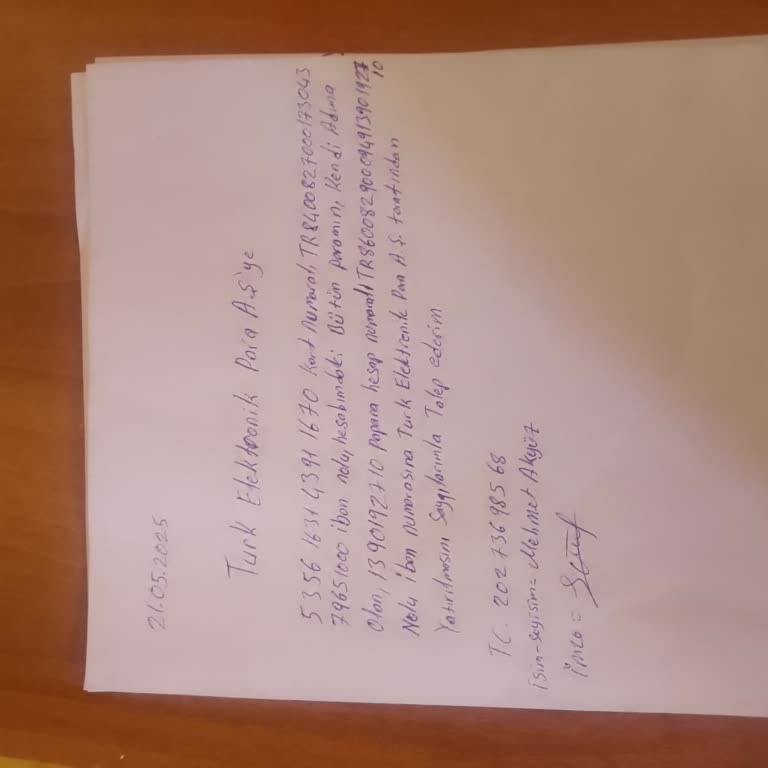 21.05.2025
Turk Elektronik Para A.Ş'ye
5356 1631 4391 1670 kart numaralı, TR8400827000173043
79651000 iban nolu, hesabımdaki Bütün paramın, Kendi Adıma
Olan, 1390192710 papara hesap numaralı TR860082900094913901927
10
Nolu iban numarasına Turk Elektronik Para A.Ş. tarafından
Yatırılmasını Saygılarımla Talep ederim
TC. 20273698568
isim-soyisim= Mehmet Akyüz
imza =